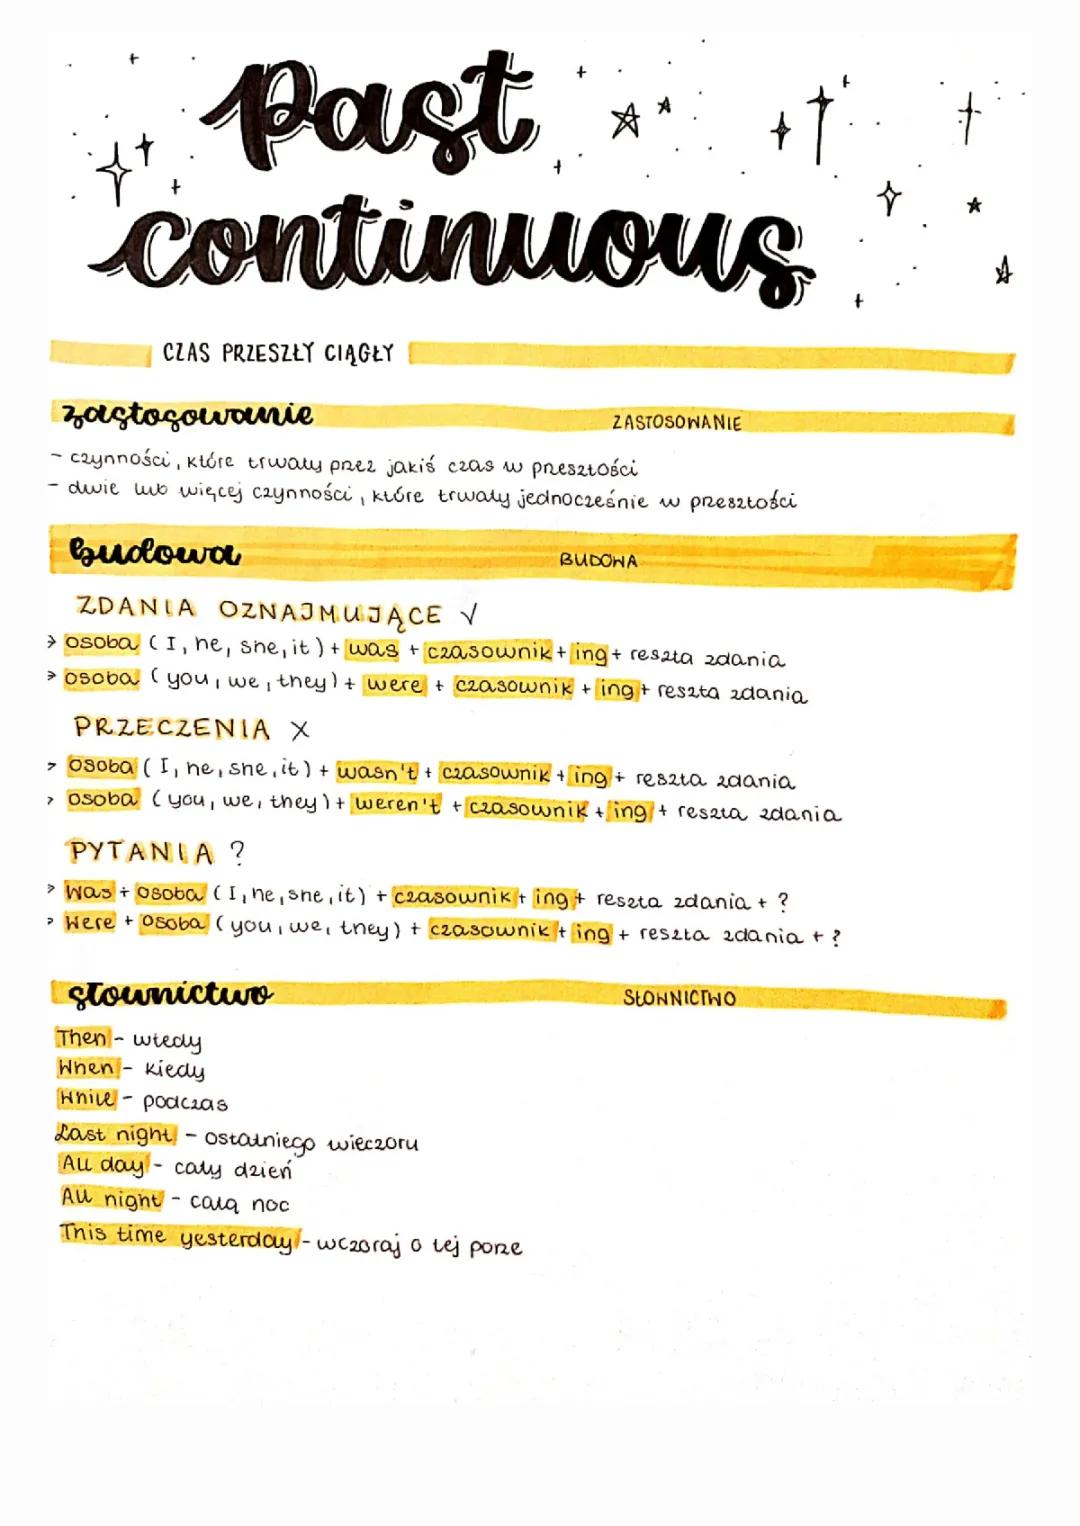 Past
continuous
CZAS PRZESZŁY CIĄGŁY
zastosowanie ZASTOSOWANIE
- czynności, które trwały przez jakiś czas w przeszłości
- dwie lub więcej czynności, które trwały jednocześnie w przeszłości
budowa BUDOWA
ZDANIA OZNAJMUJĄCE √
> osoba (I, he, she, it) + was + czasownik + ing + reszta zdania
> osoba (you, we, they) + were + czasownik + ing + reszta zdania
PRZECZENIA X
> osoba (I, he, she, it) + wasn't + czasownik + ing + reszta zdania
> osoba (you, we, they) + weren't + czasownik + ing + reszta zdania
PYTANIA ?
> Was + osoba (I, he, she, it) + czasownik + ing + reszta zdania + ?
> Were + osoba (you, we, they) + czasownik + ing + reszta zdania + ?
słownictwo SŁOWNICTWO
Then - wtedy
When - kiedy
While - podczas
Last night - ostatniego wieczoru
All day - cały dzień
All night - całą noc
This time yesterday - wczoraj o tej porze